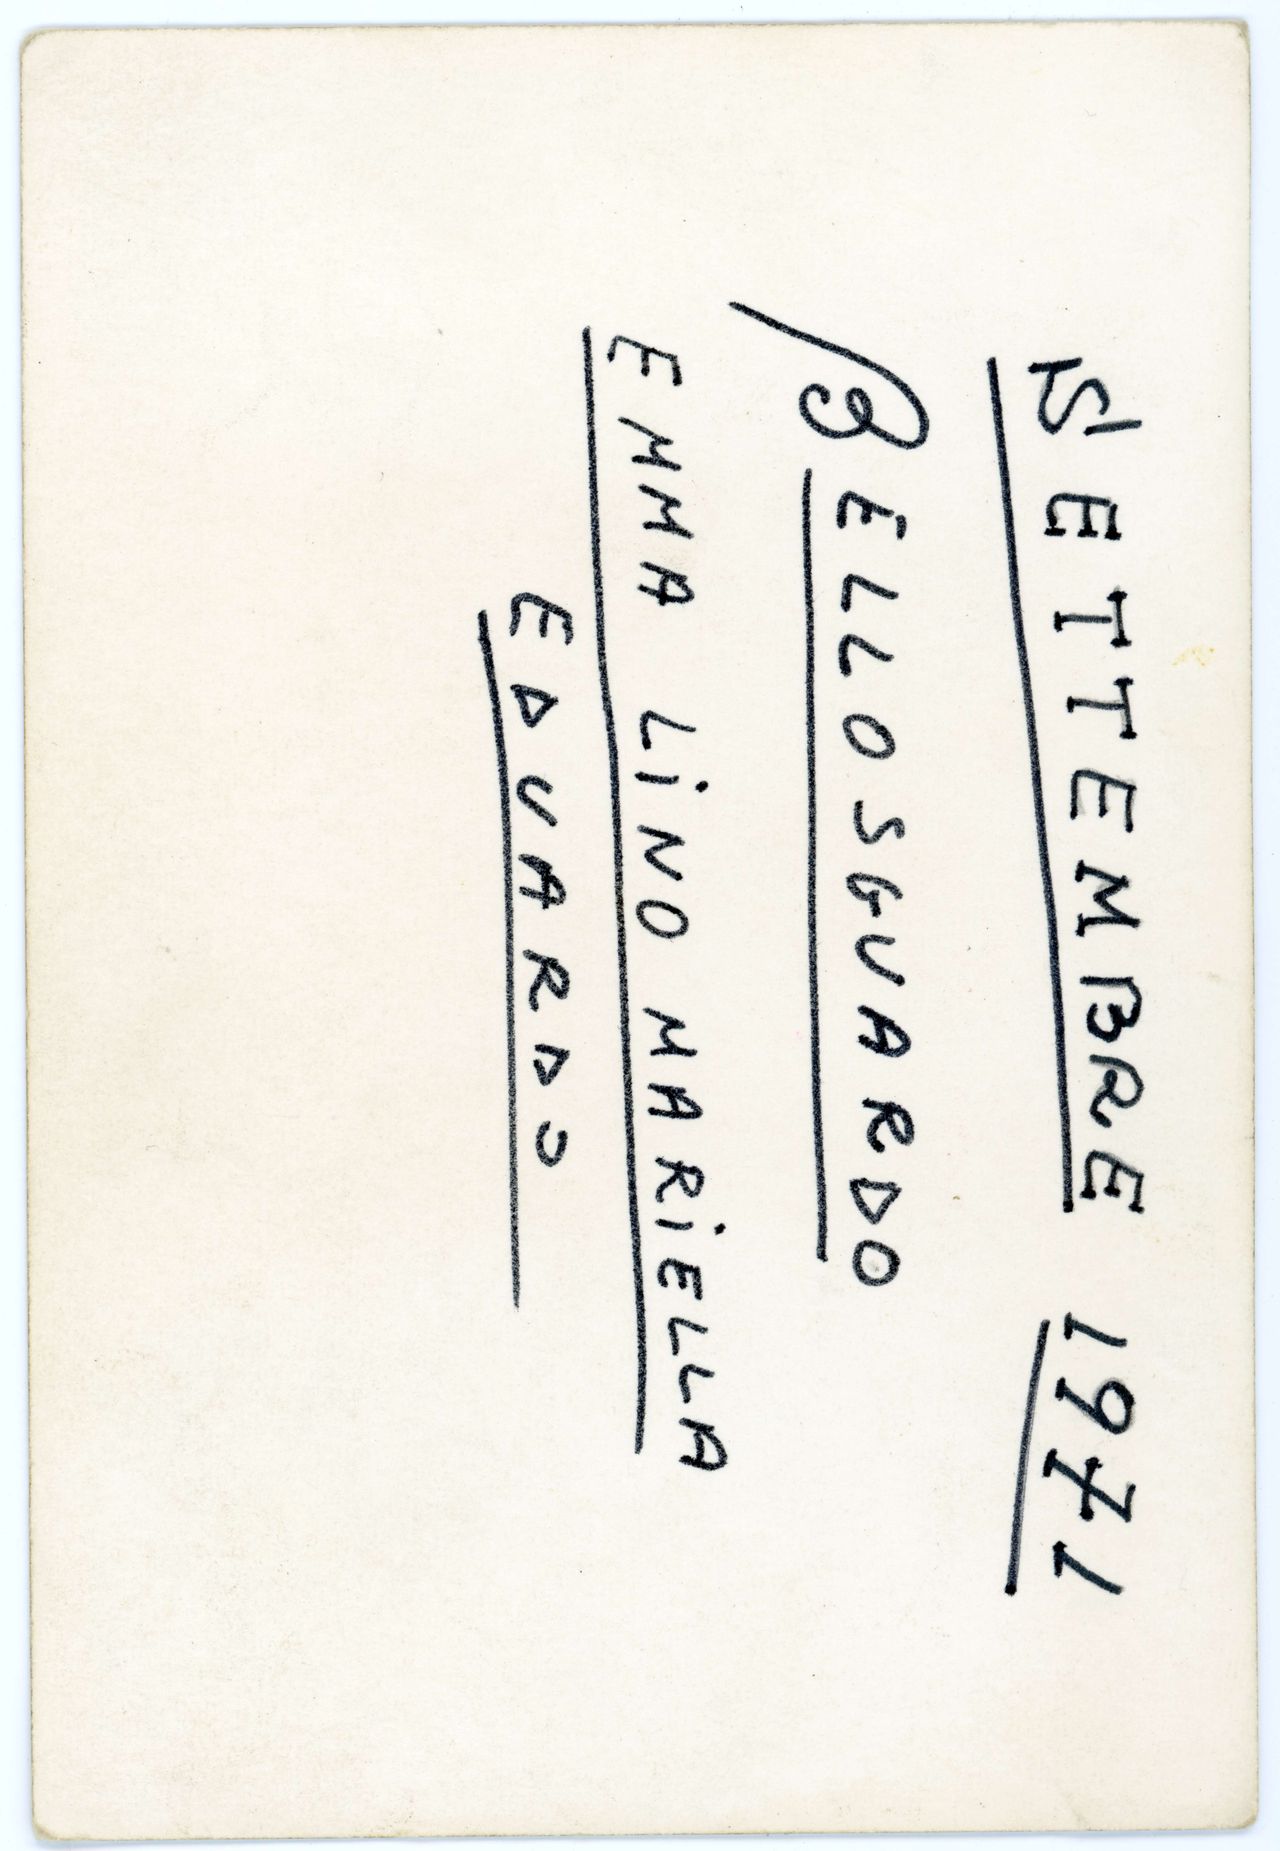 SETTEMBRE 1971
BELLOSGUARDO
EMMA LiNO MARiELLA
EDUARDO